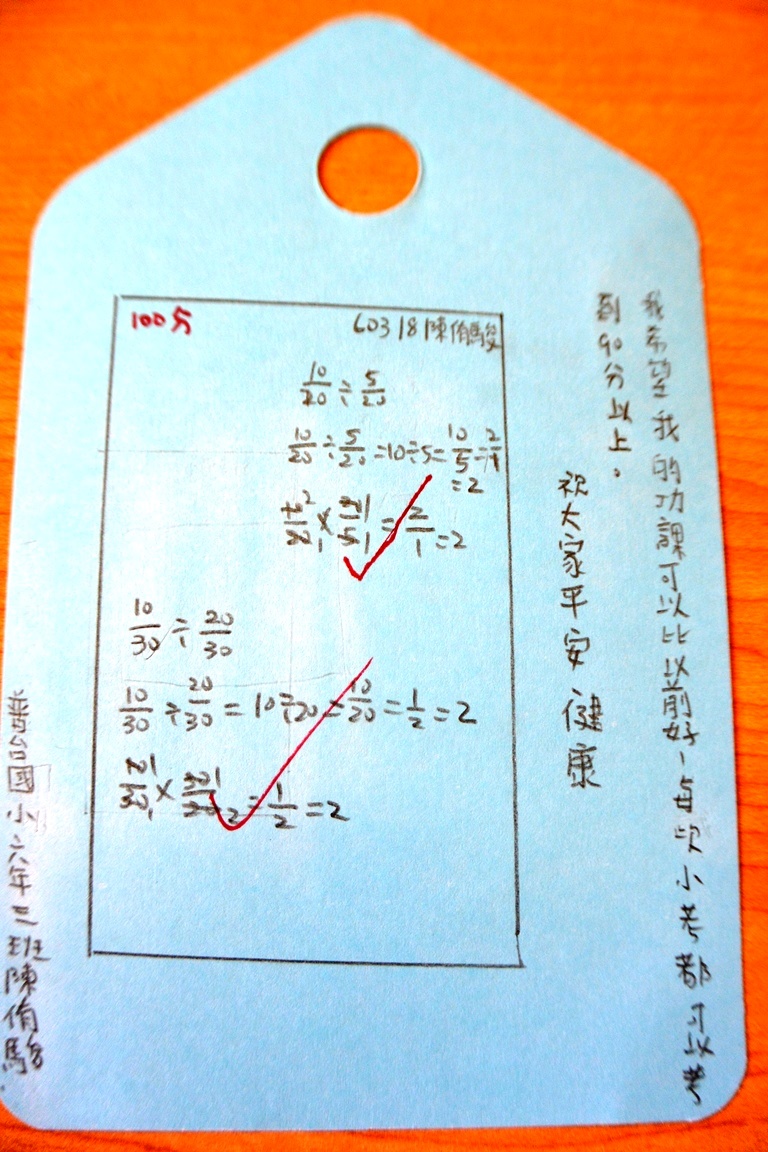 我希望我的功課可以比以前好,每次小考都可以考
到90分以上。
祝大家平安健康
100分
60318陳侑駿
10/20÷5/20
10/20÷5/20=10÷5=10/5=2/1
=2
10²/20₁×20¹/5₁=2/1=2
10/30÷20/30
10/30÷20/30=10÷20=10/20=1/2=2
10¹/30₁×30¹/20₂=1/2=2
普台國小六年三班陳侑駿